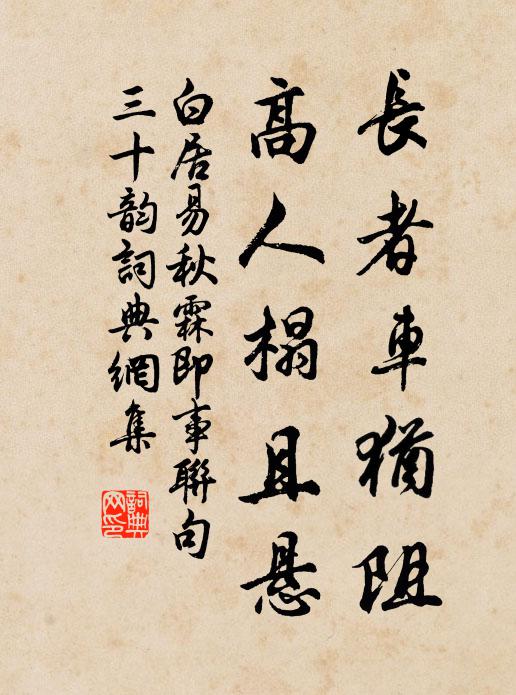 長者車猶阻
高人榻且悬
白居易秋霖即事聯句
三十韵詞典網集
詞典网印